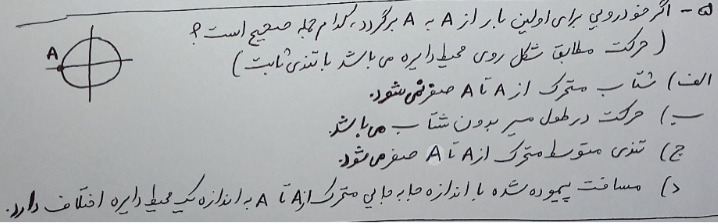 ۵- اگر خودرویی برای اولین بار از A به A برگردد، کدام جمله صحیح است؟
(حرکت مطابق شکل روی محیط دایره می باشد با تندی ثابت)
A
الف) شتاب متحرک از A تا A صفر نمی شود.
ب) حرکت در طول مسیر بدون شتاب می باشد.
ج) تندی متوسط متحرک از A تا A صفر می شود.
د) مسافت پیموده شده با اندازه جابه جایی متحرک از A تا A به اندازه یک محیط دایره اختلاف دارد.